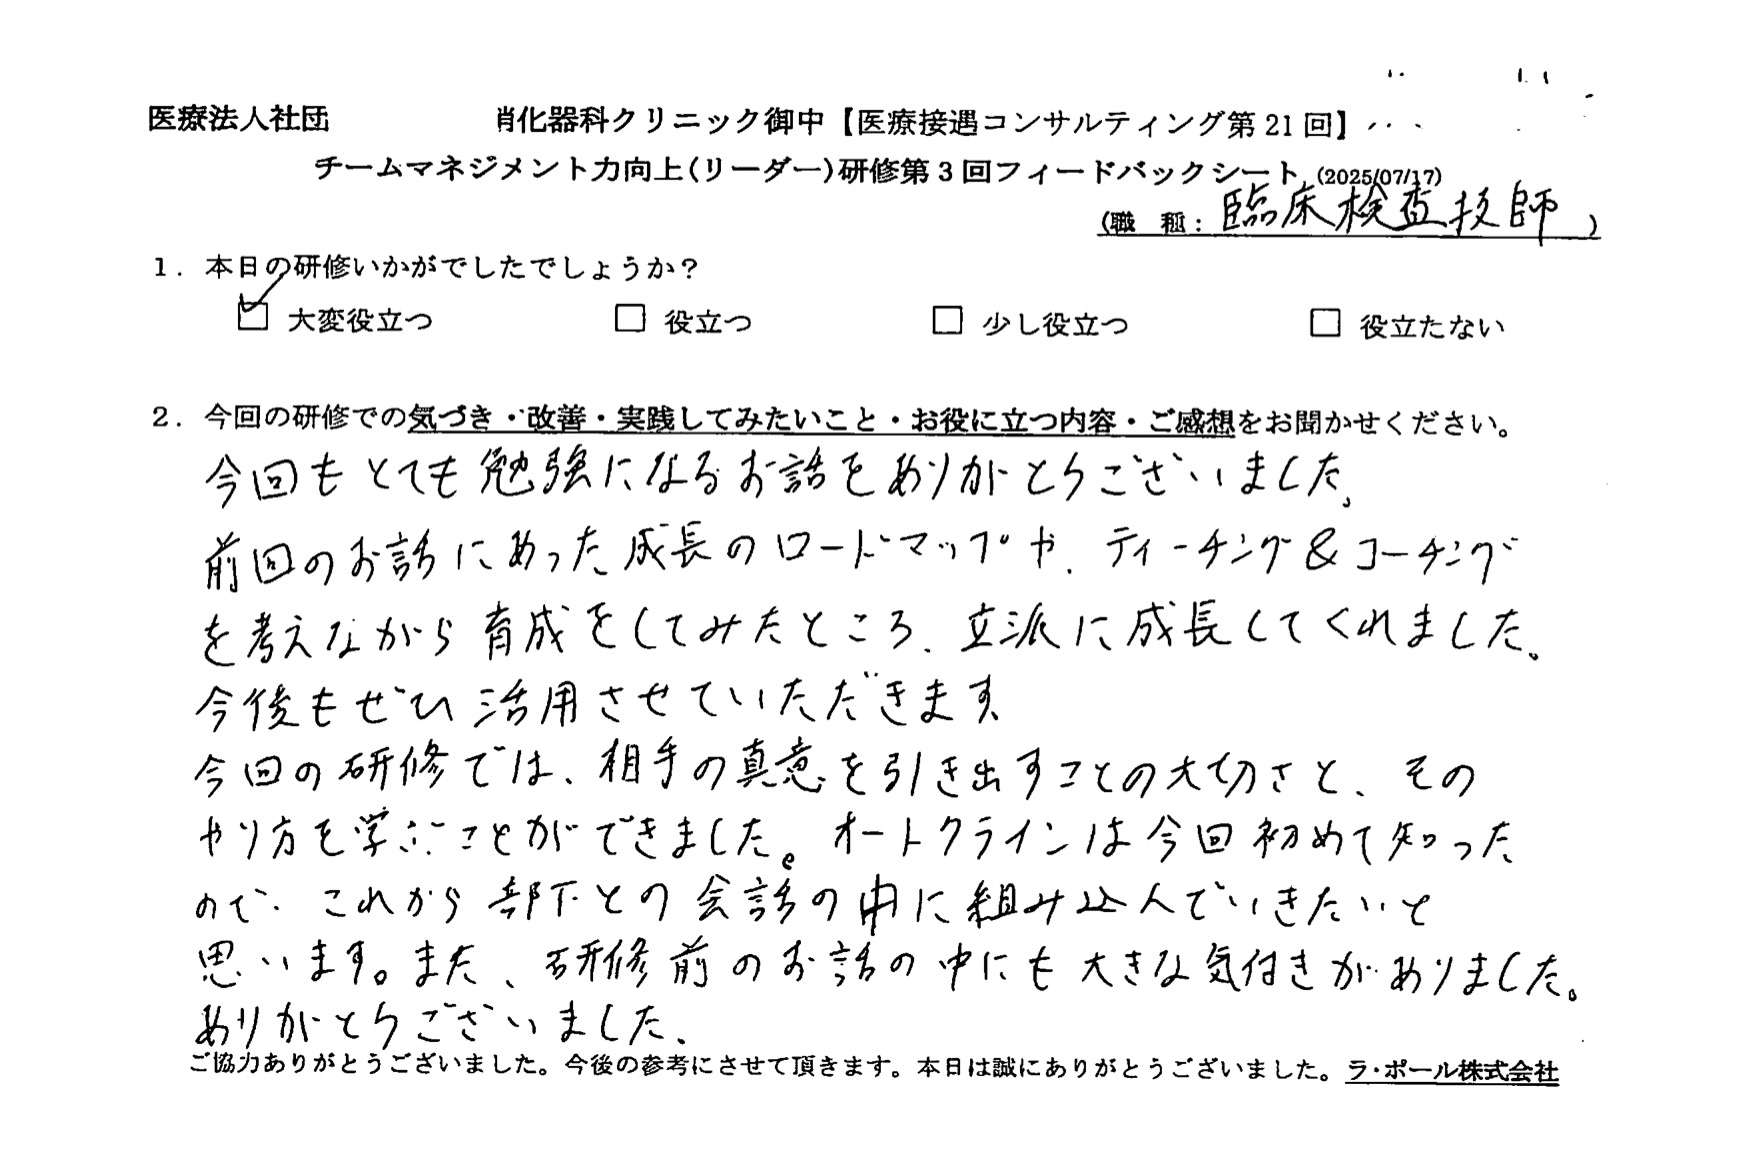 医療法人社団 消化器科クリニック御中【医療接遇コンサルティング第21回】
チームマネジメント力向上(リーダー)研修第3回フィードバックシート (2025/07/17)
(職 種: 臨床検査技師 )
1. 本日の研修いかがでしたでしょうか?
☑ 大変役立つ □ 役立つ □ 少し役立つ □ 役立たない
2. 今回の研修での気づき・改善・実践してみたいこと・お役に立つ内容・ご感想をお聞かせください。
今回もとても勉強になるお話をありがとうございました。
前回のお話にあった成長のロードマップや、ティーチング&コーチング
を考えながら育成をしてみたところ、立派に成長してくれました。
今後もぜひ活用させていただきます
今回の研修では、相手の真意を引き出すことの大切さと、その
やり方を学ぶことができました。オートクラインは今回初めて知った
ので、これから部下との会話の中に組み込んでいきたいと
思います。また、研修前のお話の中にも大きな気付きがありました。
ありがとうございました。
ご協力ありがとうございました。今後の参考にさせて頂きます。本日は誠にありがとうございました。ラ・ポール株式会社